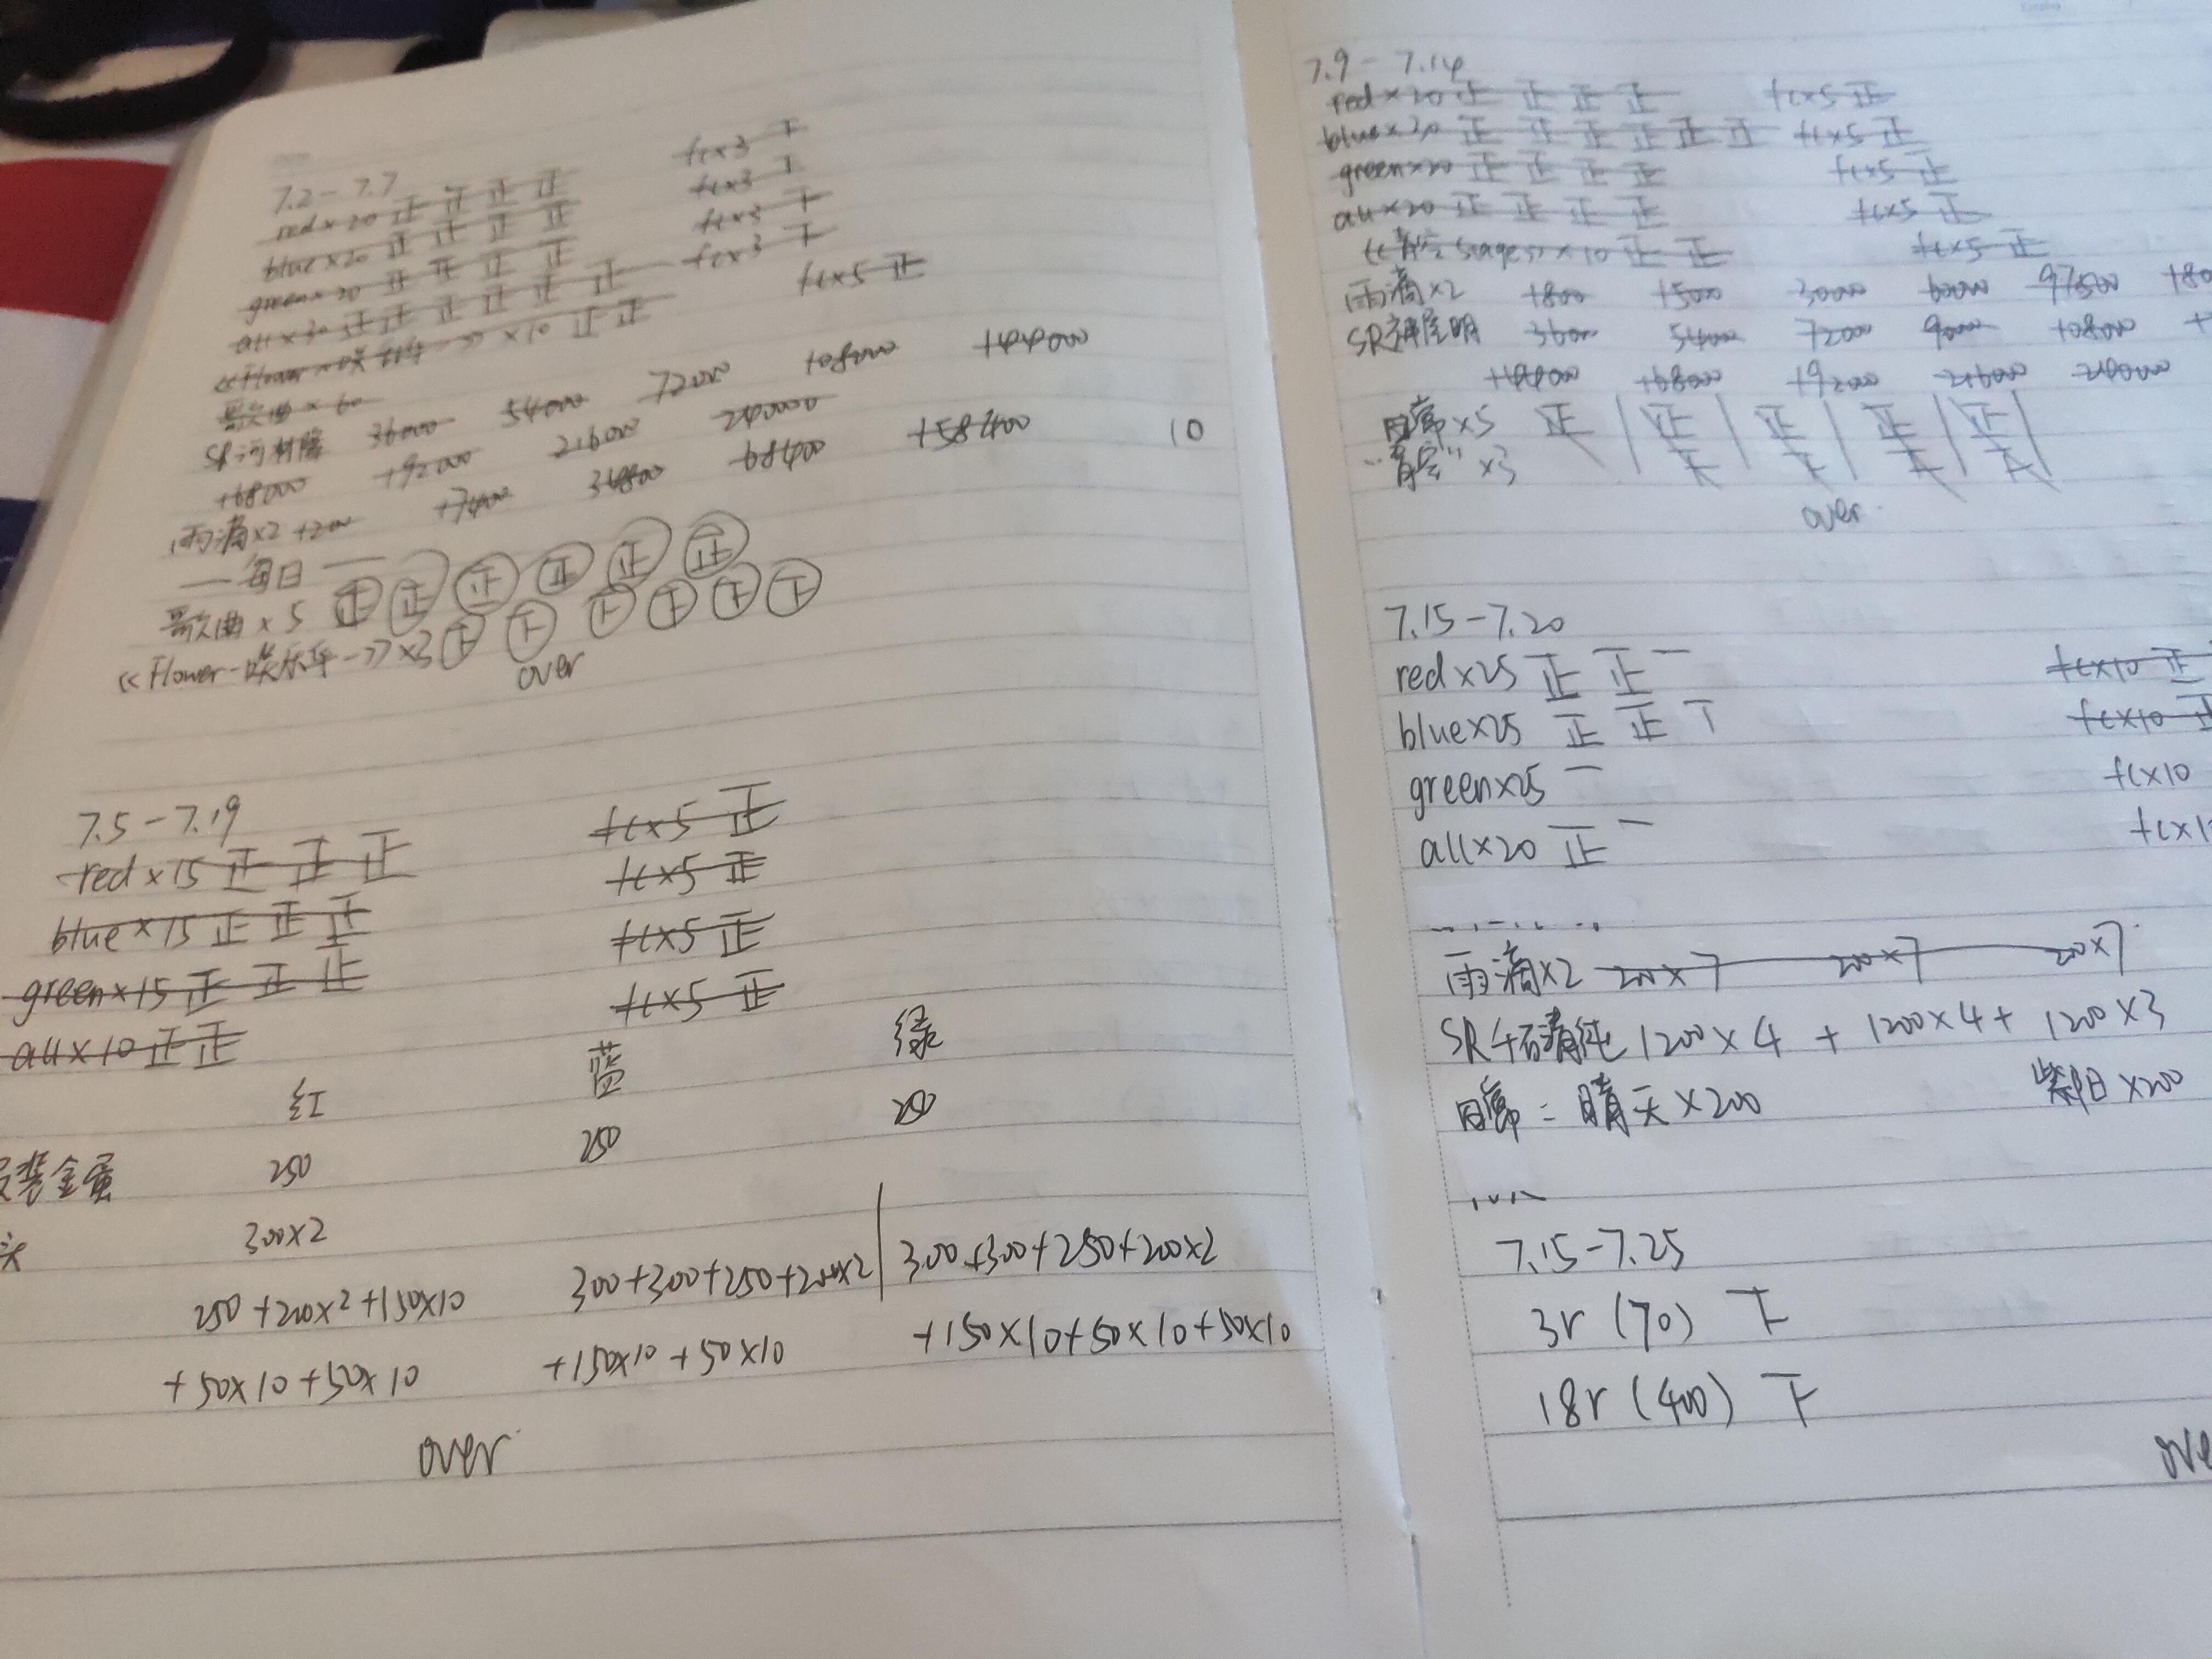 7.2-7.7
red×20 正 正 正 正 fc×3 下
blue×20 正 正 正 正 fc×3 下
green×20 正 正 正 正 fc×3 下
all×30 正 正 正 正 正 正 fc×3 下
《Flower ×10 正 正 fc×5 正
歌曲×60
SR 36000 54000 72000 108000 144000
168000 192000 216000 240000
雨滴×2 +200 +7400 34800 68400 +58400 10
—每日—
歌曲×5 正 正 正 正 正 正
《Flower- -》×3 下 下 下 下 下 下
over
7.5-7.19
red×15 正 正 正 fc×5 正
blue×15 正 正 正 fc×5 正
green×15 正 正 正 fc×5 正
all×10 正 正 fc×5 正
红 蓝 绿
装金蛋 250 250 250
300×2
250+200×2+150×10 300+300+250+200×2 300+300+250+200×2
+50×10+50×10 +150×10+50×10 +150×10+50×10+50×10
over
7.9-7.14
red×20 正 正 正 正 fc×5 正
blue×30 正 正 正 正 正 正 fc×5 正
green×20 正 正 正 正 fc×5 正
all×20 正 正 正 正 fc×5 正
×10 正 正 fc×5 正
雨滴×2 +1800 +5000 30000 60000 97500
SR神屋明 36000 54000 72000 90000 108000
144000 168000 192000 216000 240000
日常×5 正 正 正 正 正
×3 下 下 下 下
over
7.15-7.20
red×25 正 正 一 fc×10 正
blue×25 正 正 丅 fc×10 正
green×25 一 fc×10
all×20 正 一
雨滴×2 200×7 200×7 200×7
SR 1200×4 + 1200×4 + 1200×3
日常=晴天×200 ×200
7.15-7.25
3r (70) 下
18r (400) 下